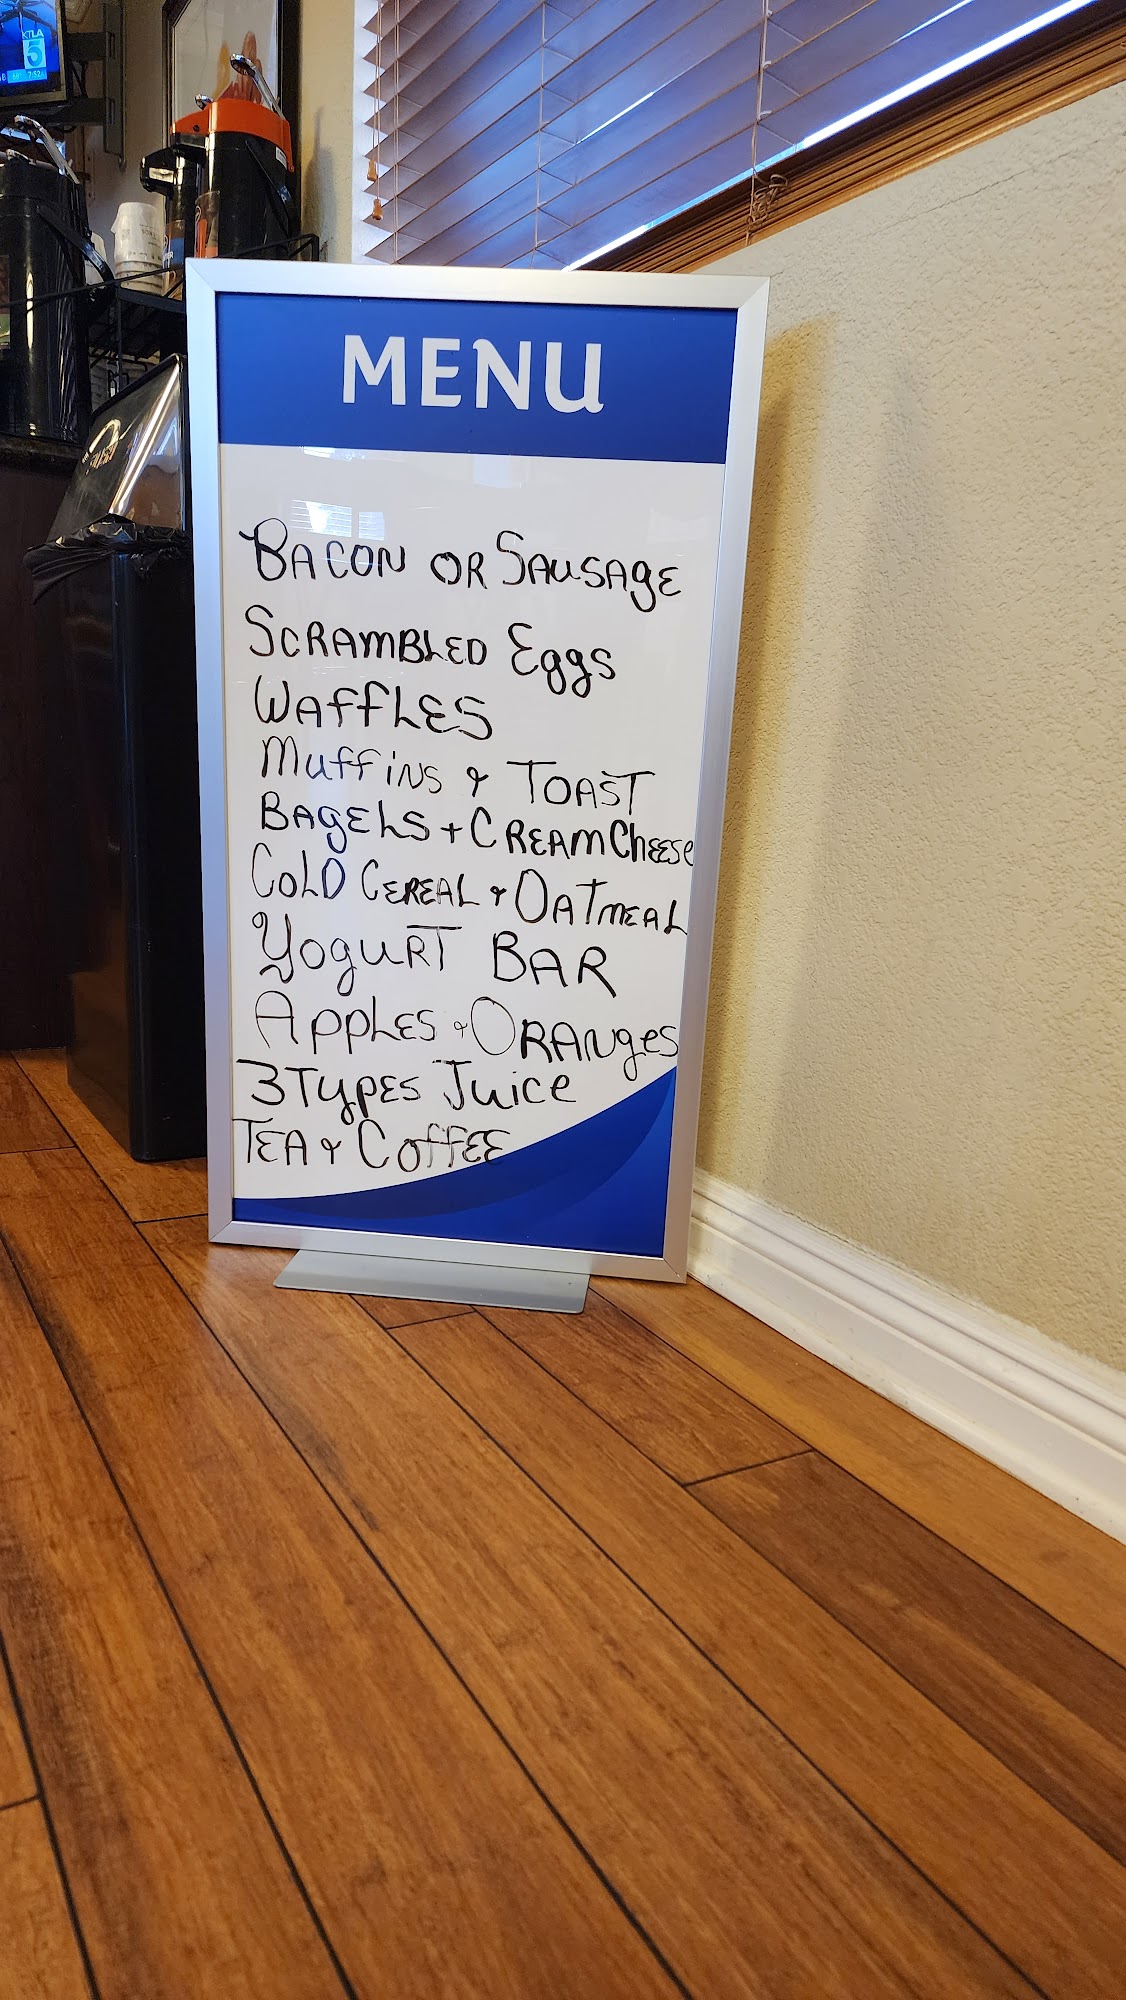 KTLA
5
7:52
MENU
BACON OR SAUSAGE
SCRAMBLED Eggs
WAFFLES
Muffins & TOAST
BAGELS + CREAM Cheese
COLD CEREAL & OATMEAL
YogurT BAR
APPLES & ORANges
3 TYPES Juice
TEA & COffEE